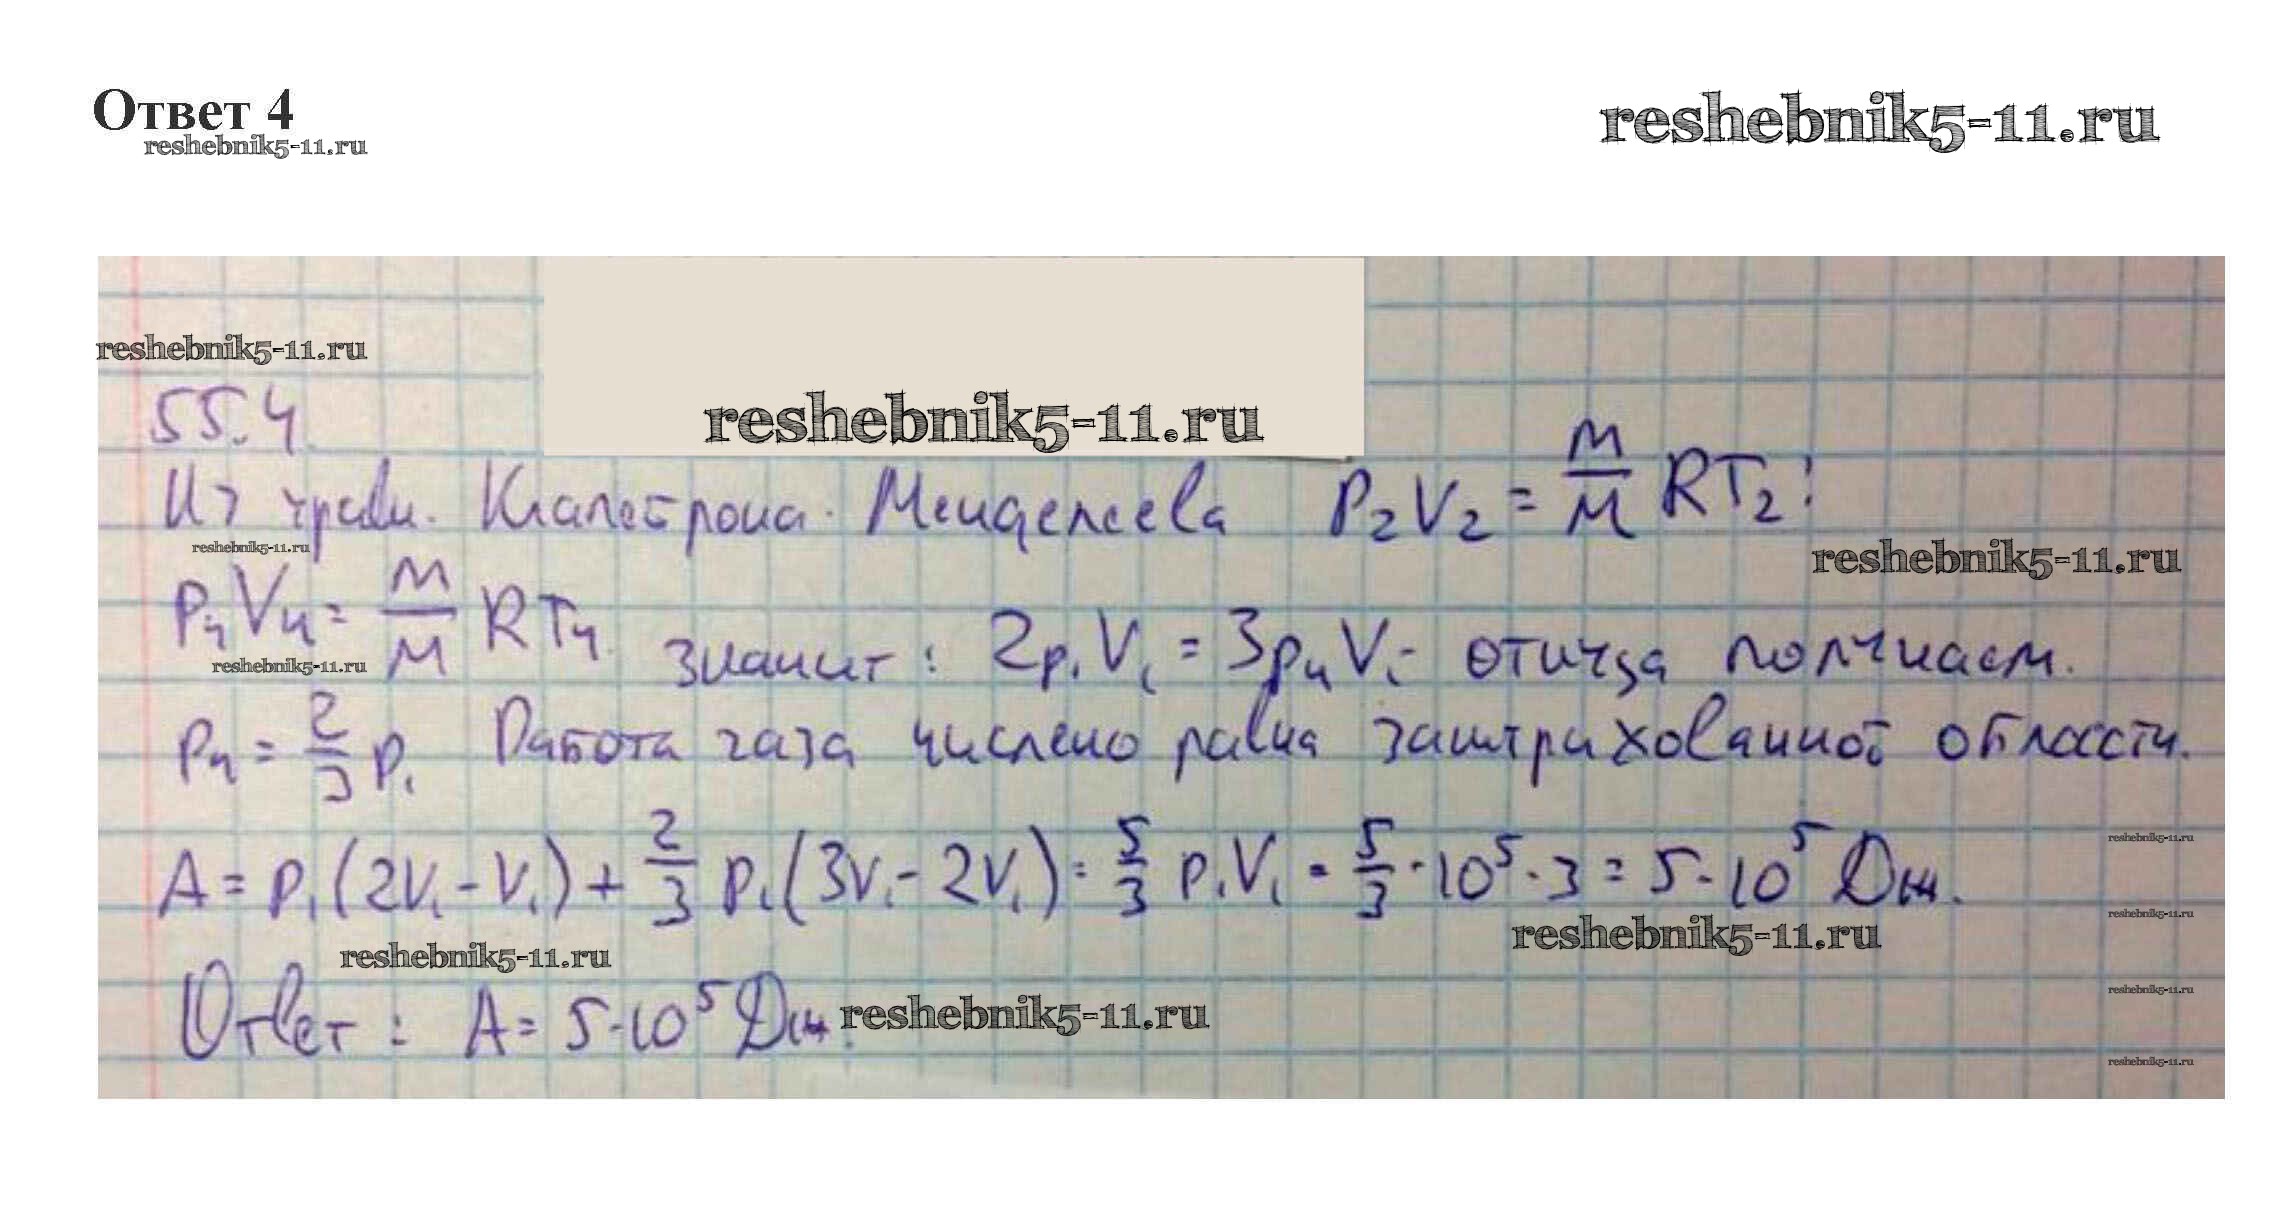 Ответ 4
reshebnik5-11.ru
reshebnik5-11.ru
reshebnik5-11.ru
reshebnik5-11.ru
55.4.
Из уравн. Клапейрона. Менделеева P₂V₂ = m/M RT₂;
reshebnik5-11.ru
reshebnik5-11.ru
P₄V₄ = m/M RT₄ значит: 2p₁V₁ = 3p₄V₁ - отсюда получаем.
reshebnik5-11.ru
P₄ = 2/3 P₁ Работа газа числено равна заштрихованной области.
reshebnik5-11.ru
A = p₁(2V₁ - V₁) + 2/3 p₁(3V₁ - 2V₁) = 5/3 p₁V₁ = 5/3 · 10⁵ · 3 = 5 · 10⁵ Дж.
reshebnik5-11.ru
reshebnik5-11.ru
reshebnik5-11.ru
Ответ: A = 5·10⁵ Дж.
reshebnik5-11.ru
reshebnik5-11.ru
reshebnik5-11.ru